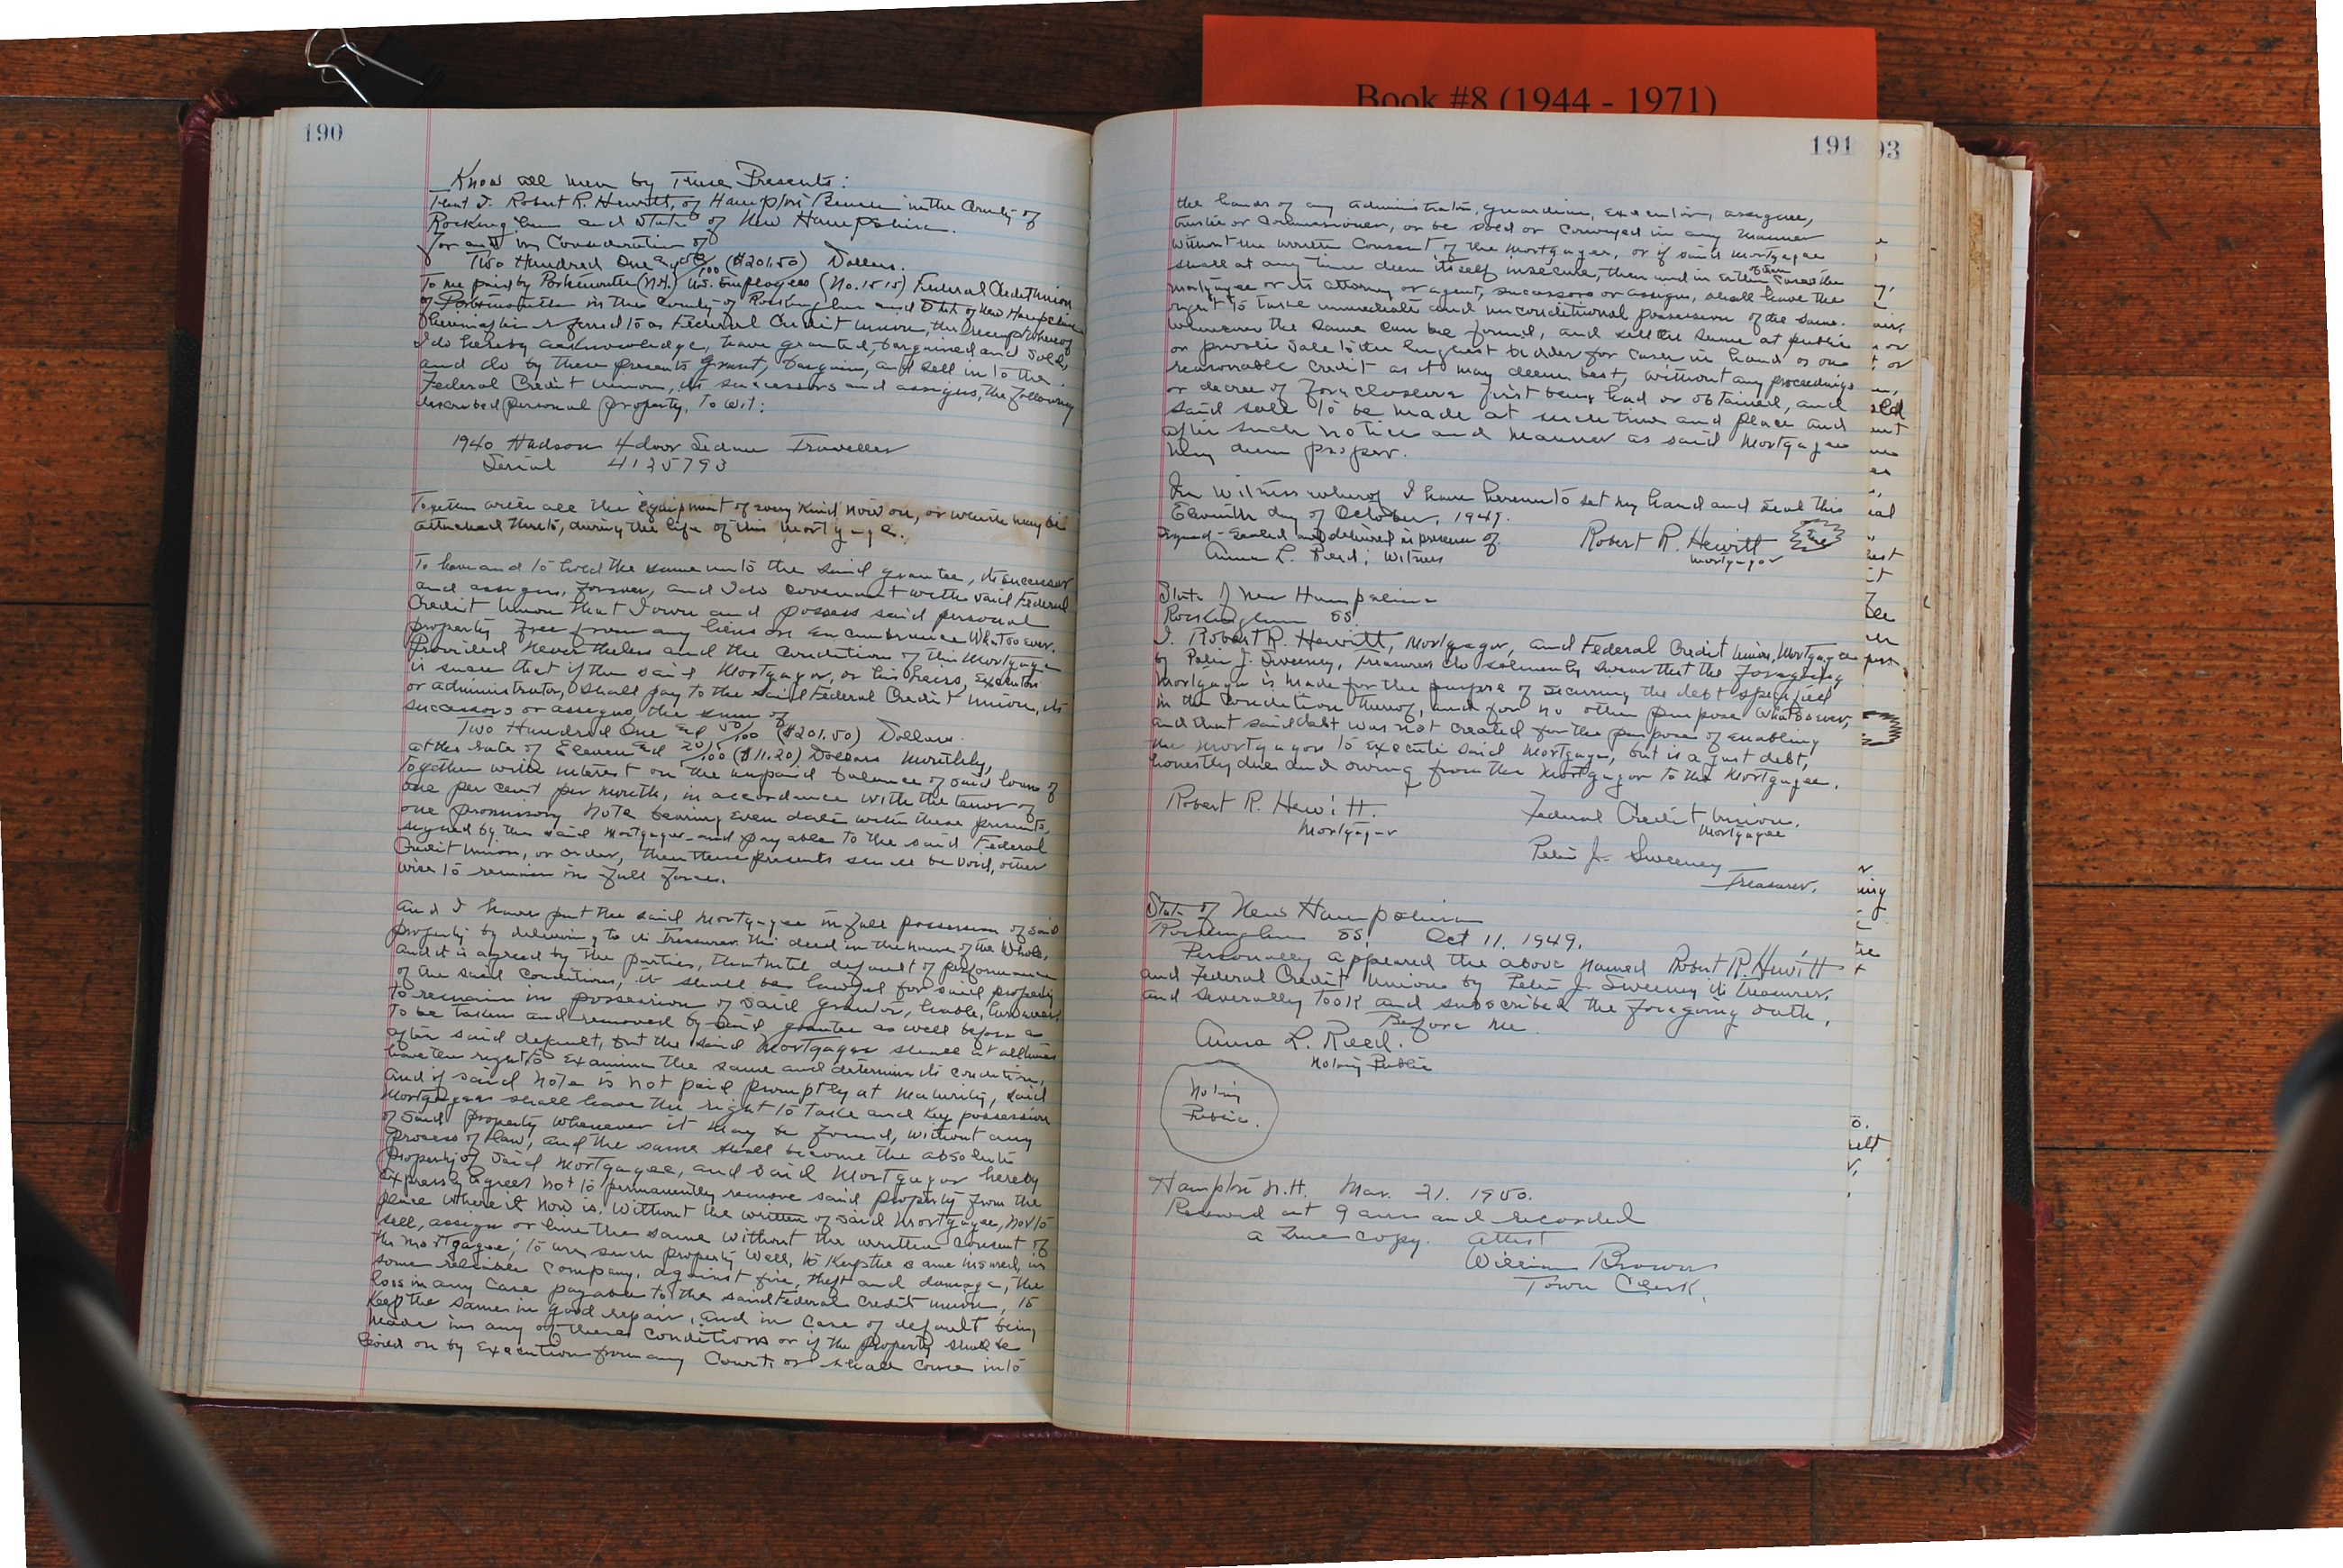 Book #8 (1944 - 1971)
190
Know all men by These Presents:
that I. Robert R. Hewitt, of Hampton Beach in the County of
Rockingham and State of New Hampshire.
for and in Consideration of
Two Hundred One and 50/100 ($201.50) Dollars.
To me paid by Portsmouth (N.H.) U.S. Employees (No. 1515) Federal Credit Union
of Portsmouth in the County of Rockingham and State of New Hampshire
hereinafter referred to as Federal Credit Union, the receipt whereof
I do hereby acknowledge, have granted, bargained and sold,
and do by these presents grant, bargain, and sell in to the
Federal Credit Union, its successors and assigns, the following
described personal property, to wit:
1940 Hudson 4 door Sedan Traveller
Serial 4125793
Together with all the Equipment of every Kind now on, or which may be
attached thereto, during the life of this mortgage.
To have and to hold the same unto the said grantee, its successors
and assigns, forever, and I do covenant with said Federal
Credit Union that I own and possess said personal
property free from any liens or encumbrance Whatsoever.
Provided Nevertheless and the Condition of this Mortgage
is such that if the said Mortgagor, or his heirs, Executors
or administrators, shall pay to the said Federal Credit Union, its
successors or assigns the sum of
Two Hundred One and 50/100 ($201.50) Dollars.
at the rate of Eleven and 20/100 ($11.20) Dollars Monthly,
Together with interest on the unpaid balance of said loan of
one per cent per month, in accordance with the tenor of
one promissory Note bearing even date with these presents,
signed by the said Mortgagor and payable to the said Federal
Credit Union, or order, then these presents shall be void, other
wise to remain in full force.
And I have put the said Mortgagee in full possession of said
property by delivering to its Treasurer this deed in the name of the Whole,
and it is agreed by the parties, that until default of performance
of the said conditions, it shall be lawful for said property
to remain in possession of said grantor, liable, however,
to be taken and removed by said grantee as well before as
after said default, but the said Mortgagee shall at all times
have the right to examine the same and determine its condition,
and if said Note is not paid promptly at Maturity, said
Mortgagee shall have the right to take and Key possession
of said property whenever it may be found, without any
process of law, and the same shall become the absolute
property of said Mortgagee, and said Mortgagor hereby
expressly agrees not to permanently remove said property from the
place where it now is, without the written of said Mortgagee, nor to
sell, assign or hire the same without the written consent of
the Mortgagee; to use such property well, to keep the same insured, in
some reliable company, against fire, theft and damage, the
loss in any case payable to the said Federal Credit Union, to
keep the same in good repair, and in case of default being
made in any of these conditions or if the Property shall be
seized on by Execution from any Court or shall come into
191
93
the hands of any administrator, guardian, executor, assignee,
trustee or Commissioner, or be sold or conveyed in any manner
without the written Consent of the Mortgagee, or if said Mortgagee
shall at any time deem itself insecure, then and in either of such cases the
Mortgagee or its attorney or agent, successors or assigns, shall have the
right to take immediate and unconditional possession of the same.
Whenever the same can be found, and sell the same at public
or private sale to the highest bidder for cash in hand or on
reasonable credit as it may deem best, without any proceedings
or decree of foreclosure first being had or obtained, and
said sale to be made at such time and place and
after such notice and manner as said Mortgagee
may deem proper.
In Witness whereof I have hereunto set my hand and seal this
Eleventh day of October, 1949.
Signed - Sealed and delivered in presence of.
Robert R. Hewitt
Anna L. Reed; Witness
Mortgagor
State of New Hampshire
Rockingham SS.
I. Robert R. Hewitt, Mortgagor, and Federal Credit Union, Mortgagee
by Peter J. Sweeney, Treasurer do solemnly swear that the foregoing
Mortgage is made for the purpose of securing the debt specified
in the Condition thereof, and for no other purpose Whatsoever,
and that said debt was not created for the purpose of enabling
the Mortgagor to execute said Mortgage, but is a just debt,
honestly due and owing from the Mortgagor to the Mortgagee.
Robert R. Hewitt.
Mortgagor
Federal Credit Union.
Mortgagee
Peter J. Sweeney
Treasurer.
State of New Hampshire
Rockingham SS. Oct 11. 1949.
Personally appeared the above named Robert R. Hewitt
and Federal Credit Union by Peter J. Sweeney its Treasurer,
and severally took and subscribed the foregoing oath,
Before me.
Anna L. Reed.
Notary Public
Notary
Public.
Hampton N.H. Mar. 21. 1950.
Received at 9 am and recorded
a true copy. Attest
William Brown
Town Clerk.